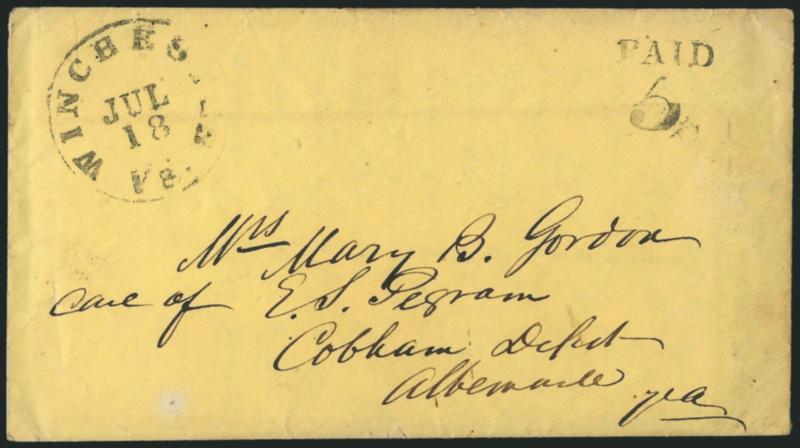 WINCHESTER Va
JUL
18
PAID
5
Mrs Mary B. Gordon
care of E. S. Pegram
Cobham Depot
Albemarle